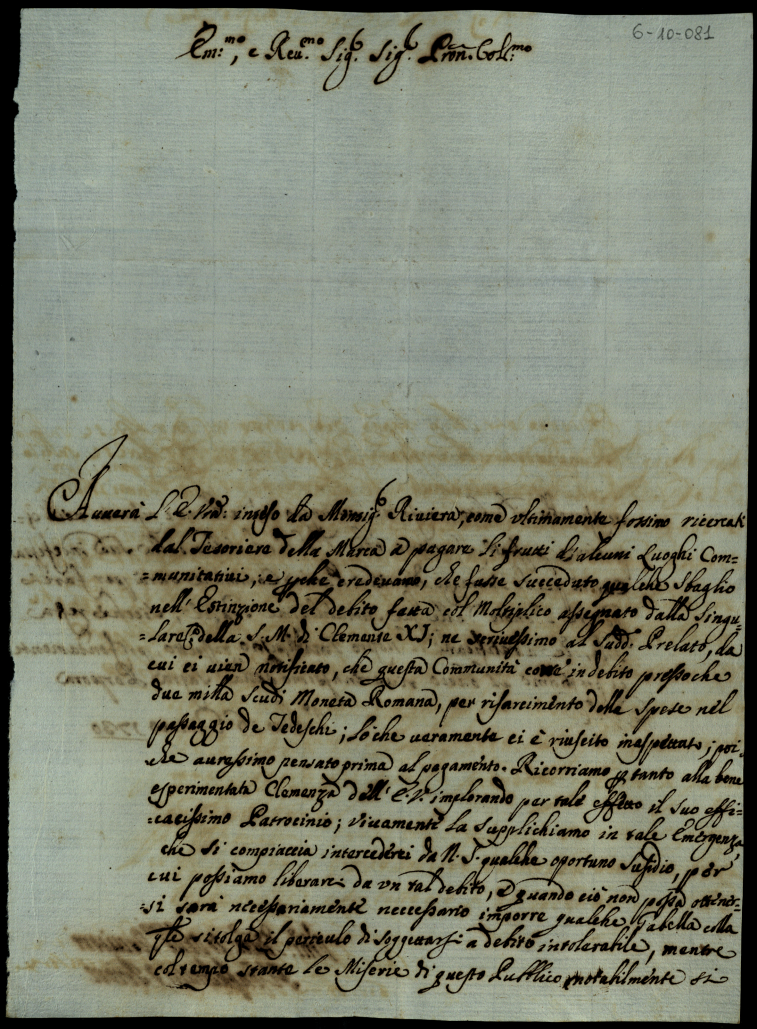 6-10-081
Em:mo, e Reu.mo Sig.r Sig.r Pron. Col.mo
Auuerà L'E. Vra: inteso da Monsig.r Riuiera, come vltimamente fossimo ricercati
dal Tesoriere della Marca à pagare li frutti d'alcuni Luoghi Com-
=munitatiui, e poiche credeuamo, che fusse succeduto qualche sbaglio
nell'Estinzione del debito fatta col Moltiplico assegnato dalla Singu-
=larità della S. M. di Clemente XI; ne scriuessimo al Sudd. Prelato, da
cui ci uien notificato, che questa Communità era in debito pressoche
due milla scudi Moneta Romana, per risarcimento delle spese nel
passaggio de Tedeschi; lo che veramente ci è riuscito inaspettato, poi
che auressimo pensato prima al pagamento. Ricorriamo p tanto alla bene
esperimentata Clemenza dell'E. V. implorando per tale effetto il suo effi-
=cacissimo Patrocinio; viuamente la supplichiamo in tale Emergenza,
che si compiaccia intercederci da N. S. qualche oportuno sussidio, per
cui possiamo liberarci da vn tal debito, e quando ciò non possa ottener-
=si sarà necessariamente neccessario imporre qualche Gabella colla
qle si tolga il pericolo di soggettarsi a debito intolerabile, mentre
col tempo stante le Miserie di questo Pubblico notabilmente si